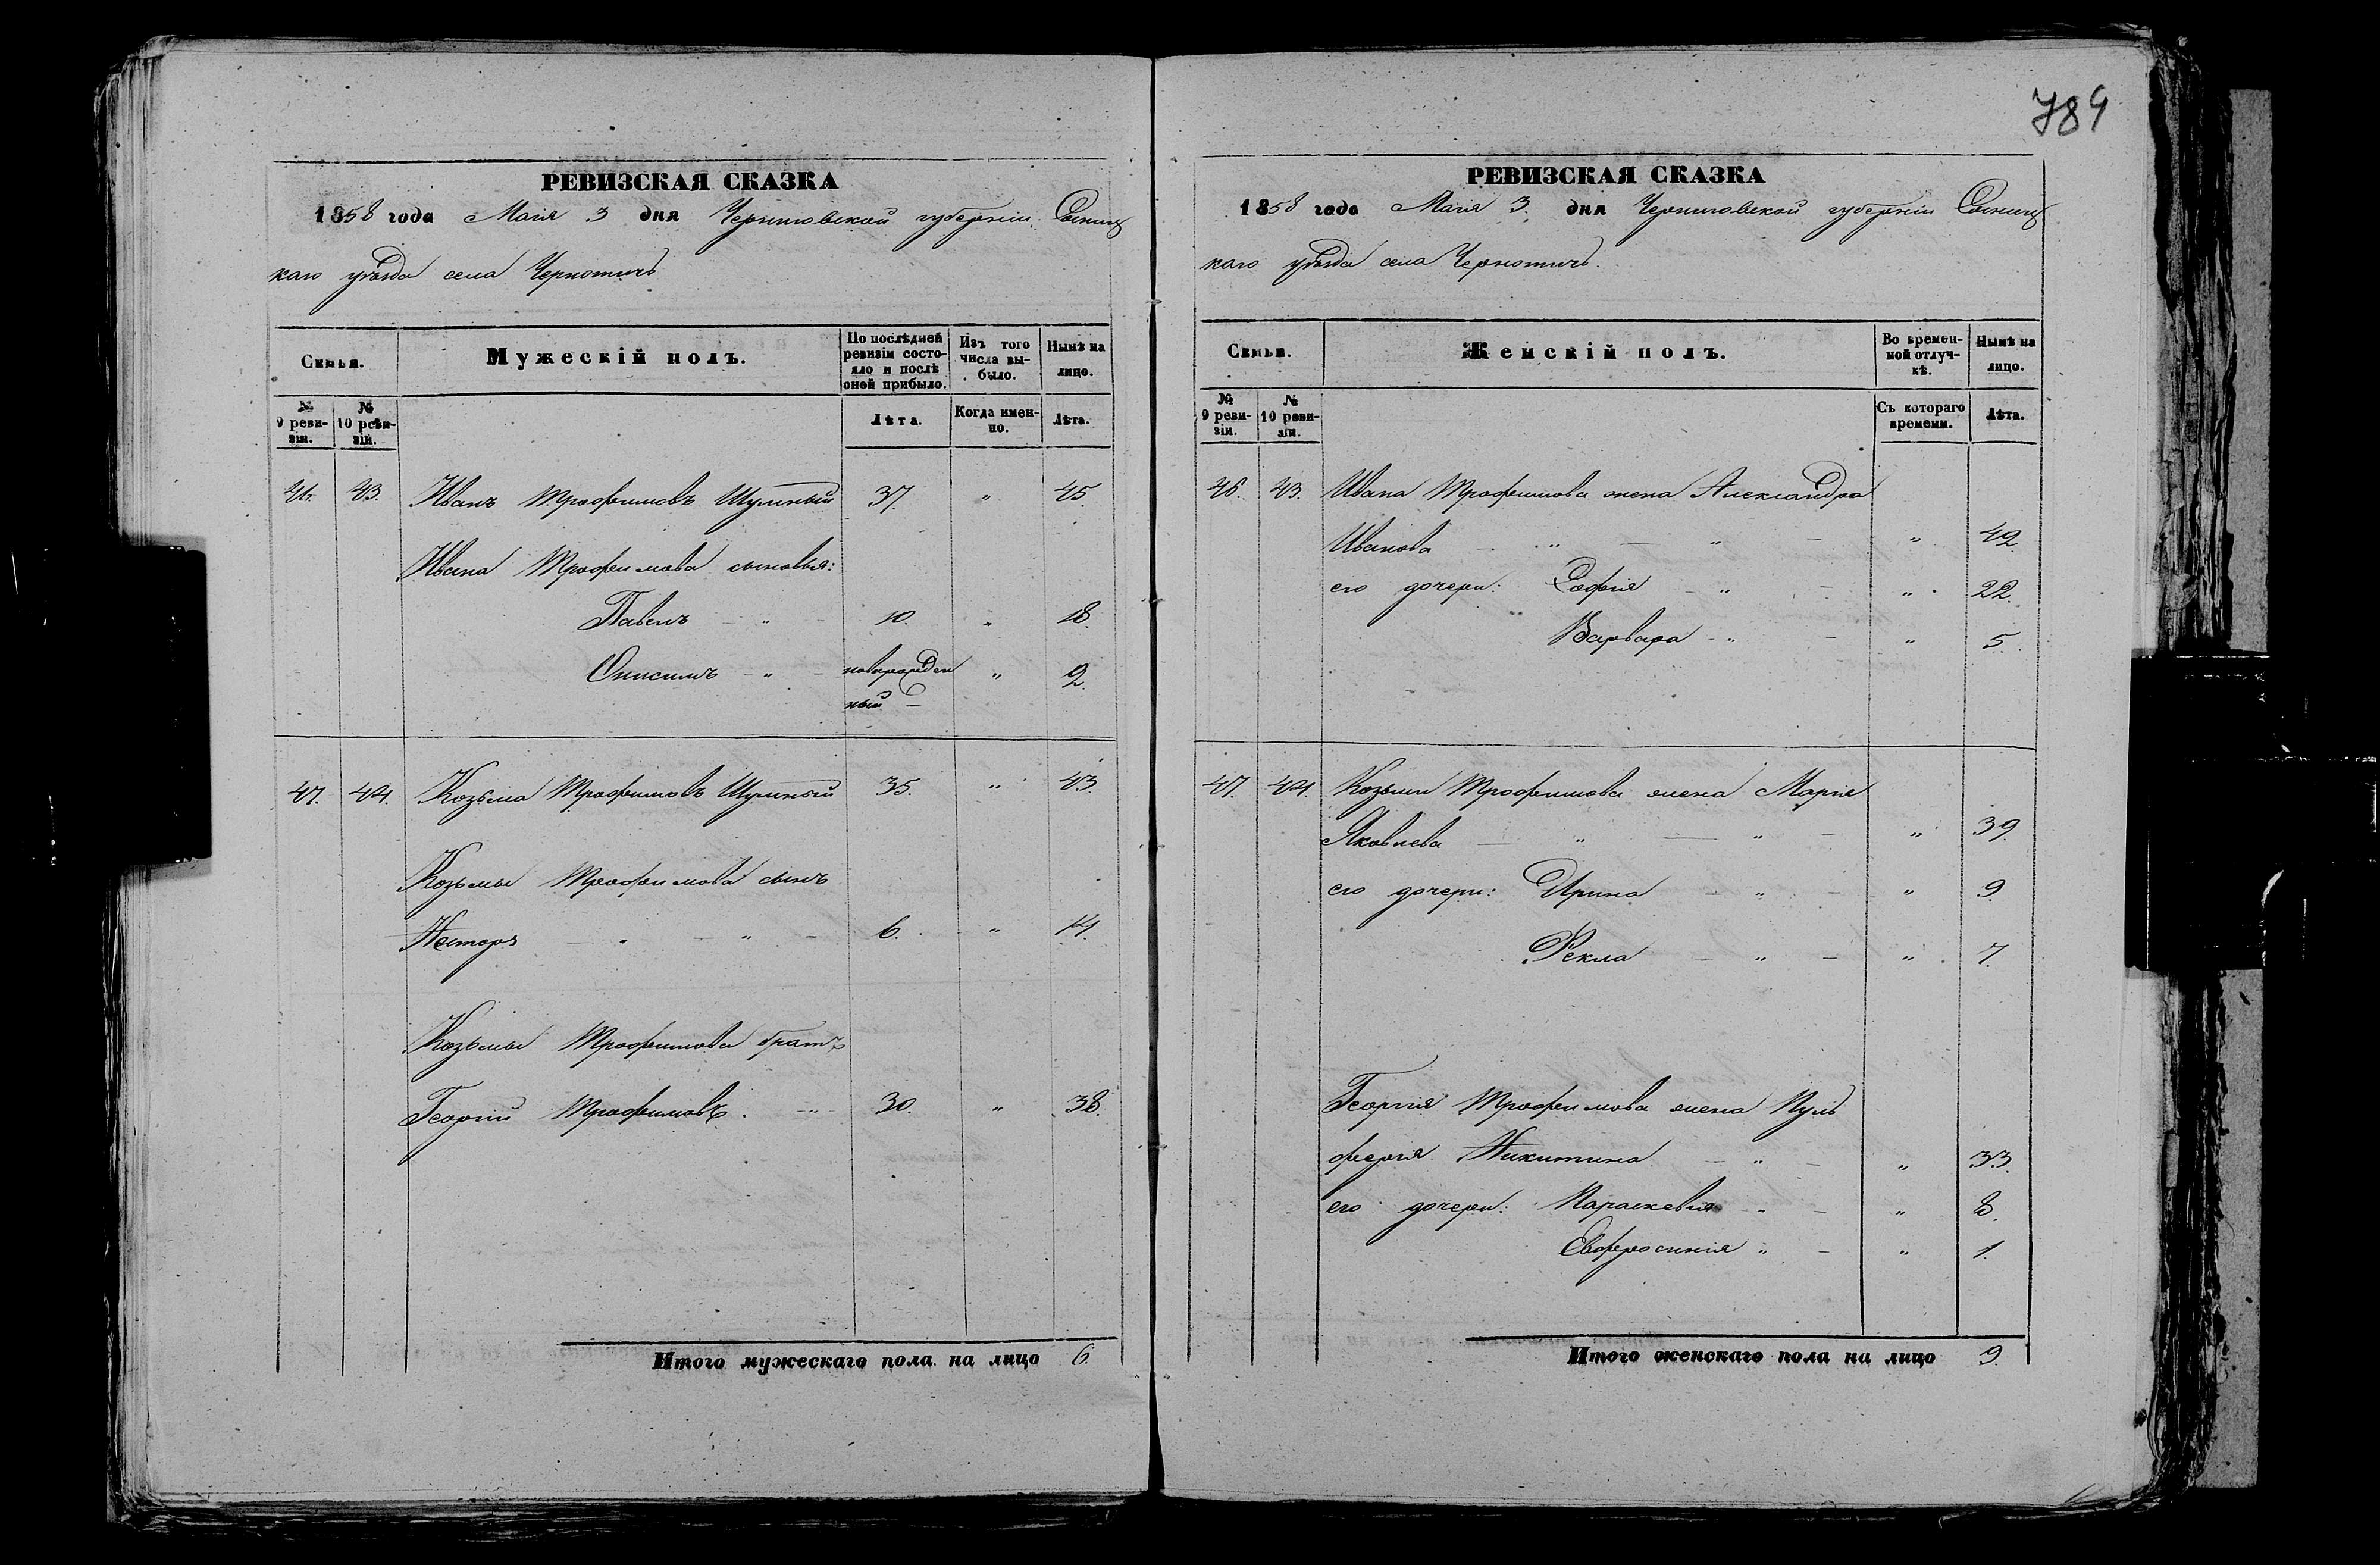 789
РЕВИЗСКАЯ СКАЗКА
1858 года Маія 3 дня Черниговской губерніи Сосниц
каго уѣзда села Чернотичъ
Семьи.
Мужескій полъ.
По послѣдней ревизіи состояло и послѣ оной прибыло.
Изъ того числа выбыло.
Нынѣ на лицо.
№ 9 ревизіи.
№ 10 ревизіи.
Лѣта.
Когда именно.
Лѣта.
46. 43. Иванъ Трофимовъ Шумный 37. " 45.
Ивана Трофимова сыновья:
Павелъ " 10. " 18.
Онисимъ " новорожден " 2.
ный
47. 44. Козьма Трофимовъ Шумный 35. " 43.
Козьмы Трофимова сынъ
Несторъ " " 6. " 14.
Козьмы Трофимова братъ
Георгій Трофимовъ. " 30. " 38.
Итого мужескаго пола на лицо 6.
РЕВИЗСКАЯ СКАЗКА
1858 года Маія 3. дня Черниговской губерніи Сосниц
каго уѣзда села Чернотичъ.
Семьи.
Женскій полъ.
Во временной отлучкѣ.
Нынѣ на лицо.
№ 9 ревизіи.
№ 10 ревизіи.
Съ котораго времени.
Лѣта.
46. 43. Ивана Трофимова жена Александра
Иванова " " " 42.
его дочери: Софія " " 22.
Варвара " " 5.
47. 44. Козьмы Трофимова жена Марія
Яковлева " " " 39.
его дочери: Ирина " " 9.
Фекла " " 7.
Георгія Трофимова жена Пуль
ферія Никитина " " 33.
его дочери: Параскевія " " 8.
Евфросинія " " 1.
Итого женскаго пола на лицо 9.